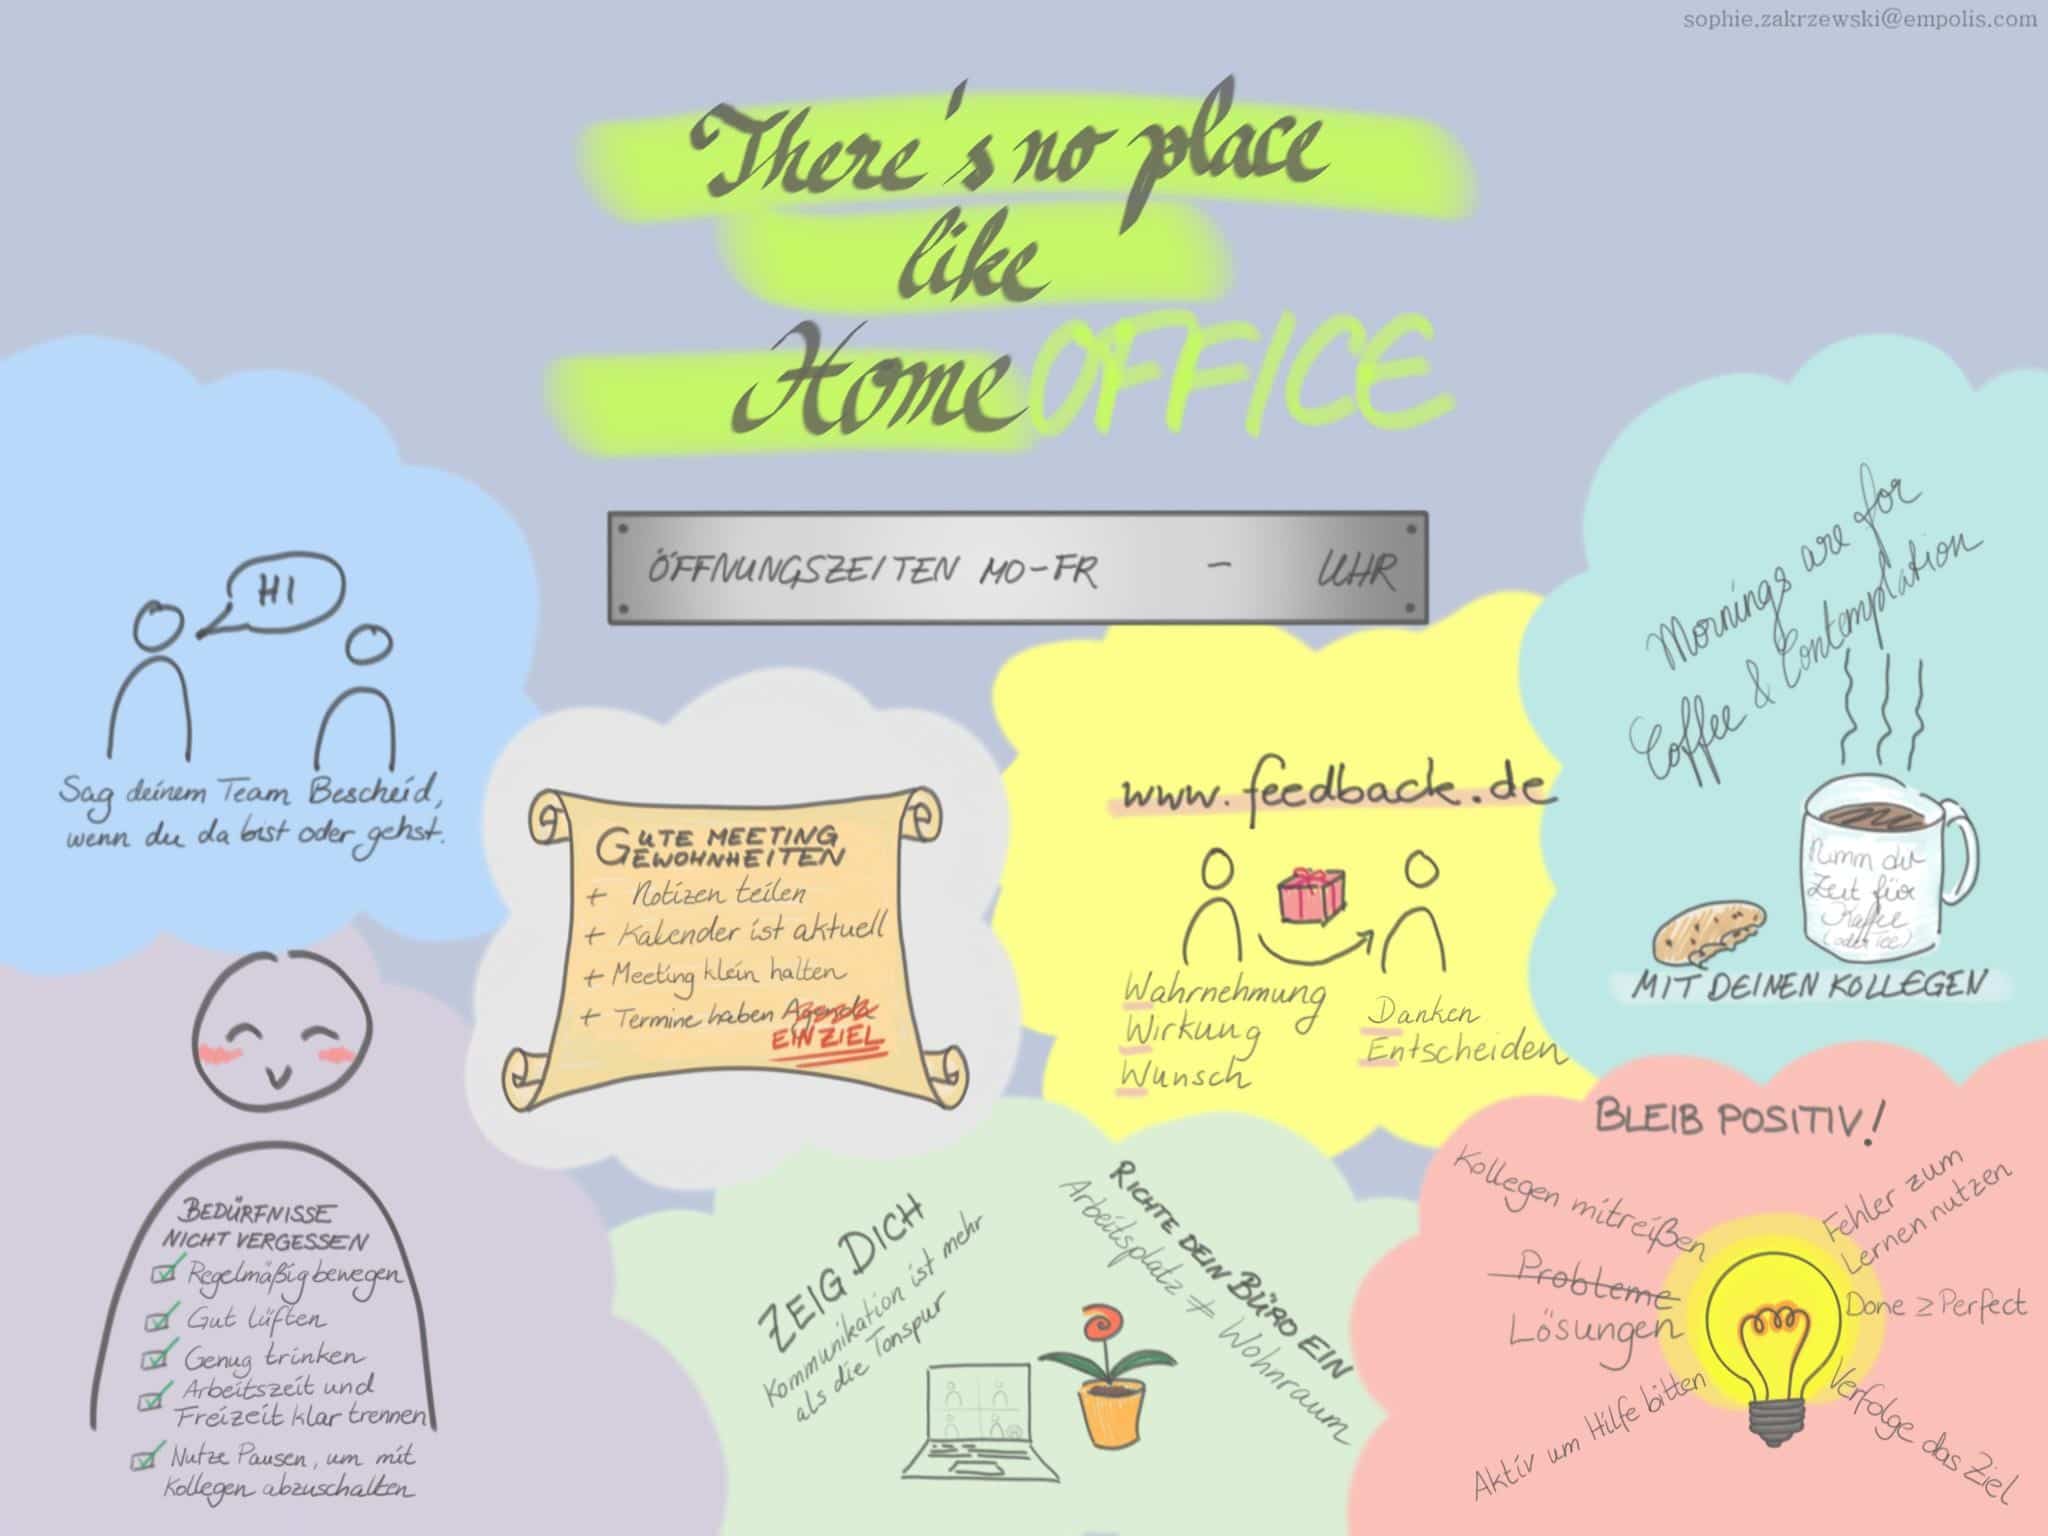 sophie.zakrzewski@empolis.com
There's no place
like
Home OFFICE
ÖFFNUNGSZEITEN MO-FR - UHR
HI
Sag deinem Team Bescheid,
wenn du da bist oder gehst.
GUTE MEETING
GEWOHNHEITEN
+ Notizen teilen
+ Kalender ist aktuell
+ Meeting klein halten
+ Termine haben Agenda
EIN ZIEL
www.feedback.de
Wahrnehmung
Wirkung
Wunsch
Danken
Entscheiden
Mornings are for
Coffee & Contemplation
Nimm du
Zeit für
Kaffee
(oder Tee)
MIT DEINEN KOLLEGEN
BEDÜRFNISSE
NICHT VERGESSEN
Regelmäßig bewegen
Gut lüften
Genug trinken
Arbeitszeit und
Freizeit klar trennen
Nutze Pausen, um mit
Kollegen abzuschalten
ZEIG DICH
Kommunikation ist mehr
als die Tonspur
RICHTE DEIN BÜRO EIN
Arbeitsplatz ≠ Wohnraum
BLEIB POSITIV!
Kollegen mitreißen
Probleme
Lösungen
Aktiv um Hilfe bitten
Fehler zum
Lernen nutzen
Done ≥ Perfect
Verfolge das Ziel